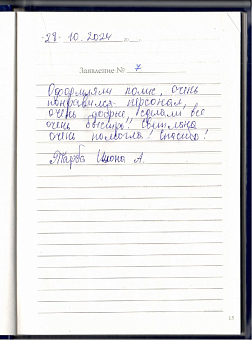 28. 10. 2024
Заявление № 7
Оформляли полис, очень
понравился персонал,
очень добрые, сделали все
очень быстро!! Светлана
очень помогла! Спасибо!
Тарба Илона А.
15